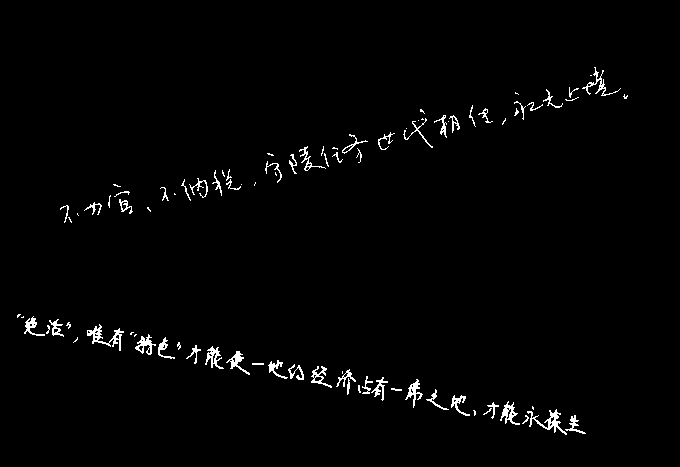 不为官、不纳税，守陵任务世代相传，永无止境。
“绝活”，唯有“特色”才能使一地的经济占有一席之地、才能永葆生